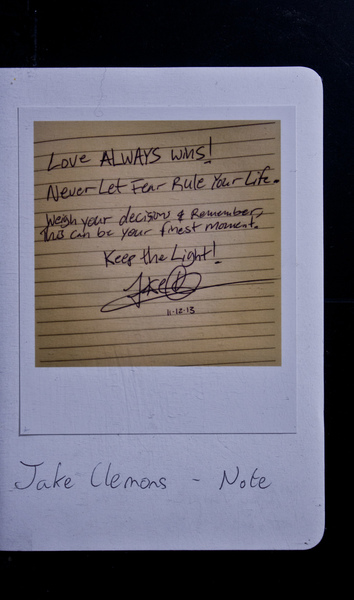 Love ALWAYS wins!
Never Let Fear Rule Your Life.
Weigh your decision & Remember,
This can be your finest moment.
Keep the Light!
Jake
11-12-13
Jake Clemons - Note